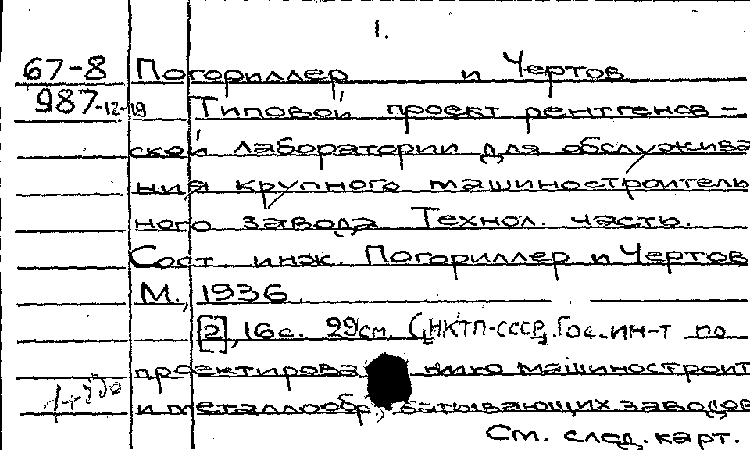 1.
67-8 Погориллер и Чертов
987-12-19 Типовой проект рентгенов-
ской лаборатории для обслужива
ния крупного машиностроитель
ного завода Технол. часть.
Сост. инж. Погориллер и Чертов
М., 1936.
[2], 16 с. 29 см. (НКТП-СССР, Гос. ин-т по
проектирова нию машиностроит
и металлообр батывающих заводов
См. след. карт.